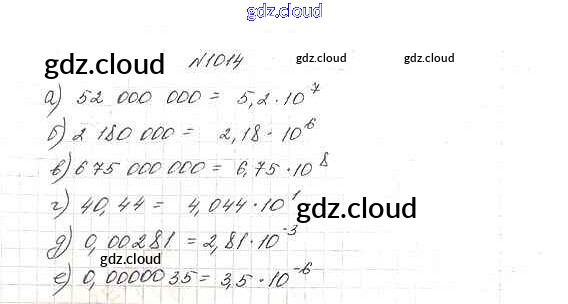 gdz.cloud
gdz.cloud №1014 gdz.cloud gdz.cloud
а) 52 000 000 = 5,2 · 10⁷
б) 2 180 000 = 2,18 · 10⁻⁶
в) 675 000 000 = 6,75 · 10⁸
г) 40,44 = 4,044 · 10¹
gdz.cloud
д) 0,00281 = 2,81 · 10⁻³
gdz.cloud
е) 0,0000035 = 3,5 · 10⁻⁶